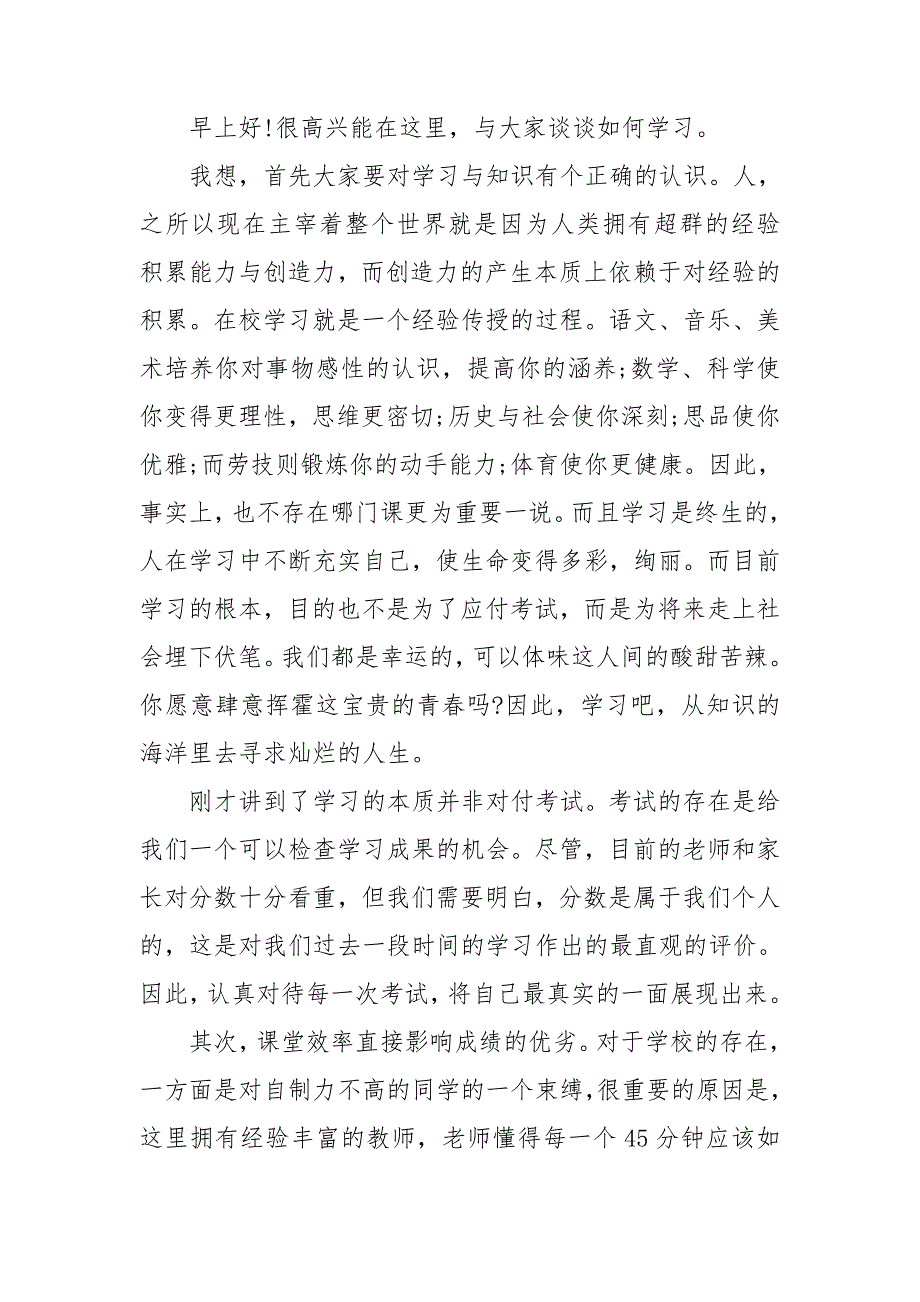 早上好!很高兴能在这里，与大家谈谈如何学习。
我想，首先大家要对学习与知识有个正确的认识。人，
之所以现在主宰着整个世界就是因为人类拥有超群的经验
积累能力与创造力，而创造力的产生本质上依赖于对经验的
积累。在校学习就是一个经验传授的过程。语文、音乐、美
术培养你对事物感性的认识，提高你的涵养;数学、科学使
你变得更理性，思维更密切;历史与社会使你深刻;思品使你
优雅;而劳技则锻炼你的动手能力;体育使你更健康。因此，
事实上，也不存在哪门课更为重要一说。而且学习是终生的，
人在学习中不断充实自己，使生命变得多彩，绚丽。而目前
学习的根本，目的也不是为了应付考试，而是为将来走上社
会埋下伏笔。我们都是幸运的，可以体味这人间的酸甜苦辣。
你愿意肆意挥霍这宝贵的青春吗?因此，学习吧，从知识的
海洋里去寻求灿烂的人生。
刚才讲到了学习的本质并非对付考试。考试的存在是给
我们一个可以检查学习成果的机会。尽管，目前的老师和家
长对分数十分看重，但我们需要明白，分数是属于我们个人
的，这是对我们过去一段时间的学习作出的最直观的评价。
因此，认真对待每一次考试，将自己最真实的一面展现出来。
其次，课堂效率直接影响成绩的优劣。对于学校的存在，
一方面是对自制力不高的同学的一个束缚，很重要的原因是，
这里拥有经验丰富的教师，老师懂得每一个 45 分钟应该如